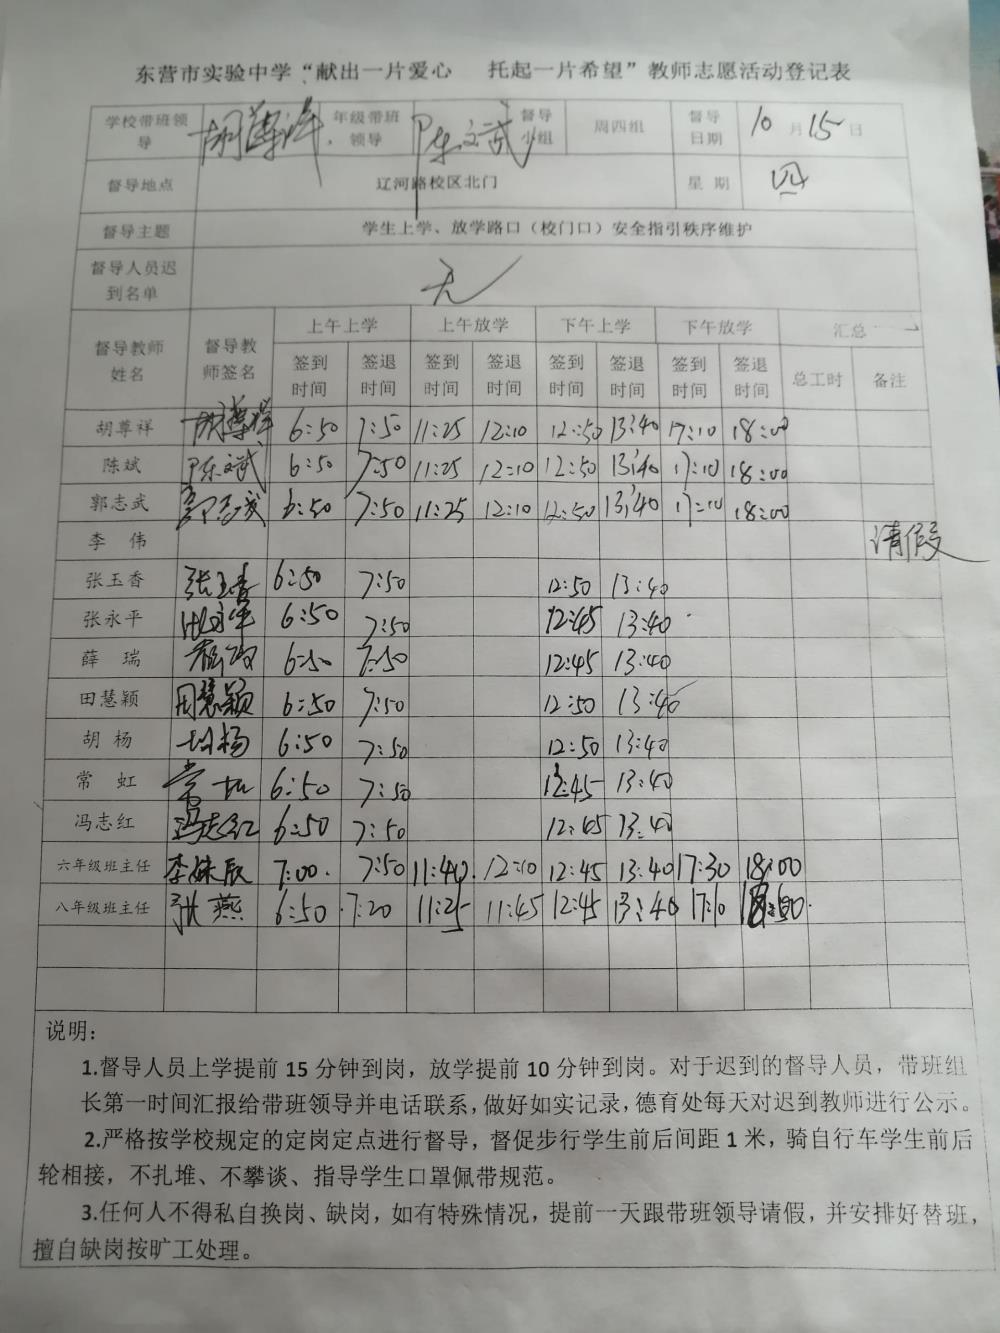 东营市实验中学“献出一片爱心 托起一片希望”教师志愿活动登记表
学校带班领导 胡尊祥 年级带班领导 陈文斌 督导小组 周四组 督导日期 10月15日
督导地点 辽河路校区北门 星 期 四
督导主题 学生上学、放学路口（校门口）安全指引秩序维护
督导人员迟到名单 无
督导教师姓名 督导教师签名 上午上学 上午放学 下午上学 下午放学 汇总
签到时间 签退时间 签到时间 签退时间 签到时间 签退时间 签到时间 签退时间 总工时 备注
胡尊祥 胡尊祥 6:50 7:50 11:25 12:10 12:50 13:40 17:10 18:00
陈斌 陈文斌 6:50 7:50 11:25 12:10 12:50 13:40 17:10 18:00
郭志武 郭志武 6:50 7:50 11:25 12:10 12:50 13:40 17:10 18:00
李 伟 请假
张玉香 张玉香 6:50 7:50 12:50 13:40
张永平 张永平 6:50 7:50 12:45 13:40
薛 瑞 6:50 7:50 12:45 13:40
田慧颖 田慧颖 6:50 7:50 12:50 13:40
胡 杨 胡杨 6:50 7:50 12:50 13:40
常 虹 常虹 6:50 7:50 12:45 13:40
冯志红 冯志红 6:50 7:50 12:45 13:40
六年级班主任 李姝辰 7:00 7:50 11:40 12:10 12:45 13:40 17:30 18:00
八年级班主任 张燕 6:50 7:20 11:25 11:45 12:45 13:40 17:10
说明：
1.督导人员上学提前 15 分钟到岗，放学提前 10 分钟到岗。对于迟到的督导人员，带班组
长第一时间汇报给带班领导并电话联系，做好如实记录，德育处每天对迟到教师进行公示。
2.严格按学校规定的定岗定点进行督导，督促步行学生前后间距 1 米，骑自行车学生前后
轮相接，不扎堆、不攀谈、指导学生口罩佩带规范。
3.任何人不得私自换岗、缺岗，如有特殊情况，提前一天跟带班领导请假，并安排好替班，
擅自缺岗按旷工处理。